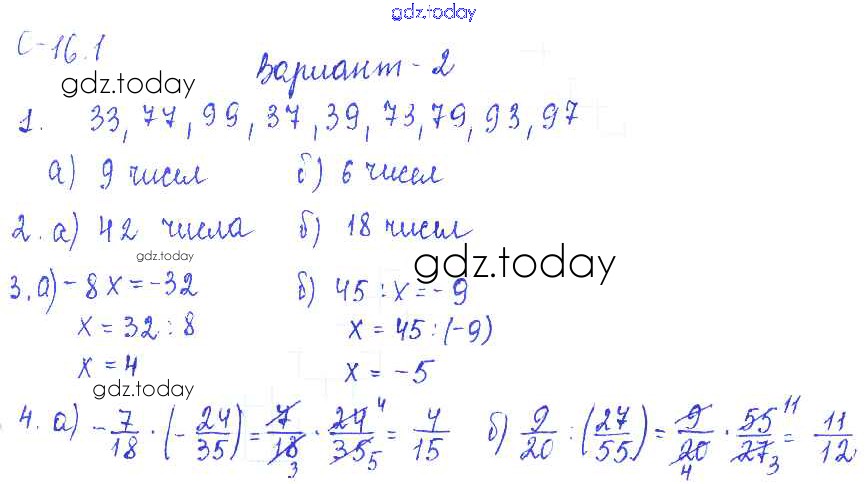 gdz.today
С-16.1
gdz.today
Вариант-2
1. 33, 77, 99, 37, 39, 73, 79, 93, 97
а) 9 чисел б) 6 чисел
2. а) 42 числа б) 18 чисел
gdz.today
gdz.today
3. а) -8x = -32 б) 45 : x = -9
x = 32 : 8 x = 45 : (-9)
x = 4 x = -5
gdz.today
4. а) -7/18 · (-24/35) = 7/18 3 · 24 4/35 5 = 4/15 б) 9/20 : (27/55) = 9/20 4 · 55 11/27 3 = 11/12